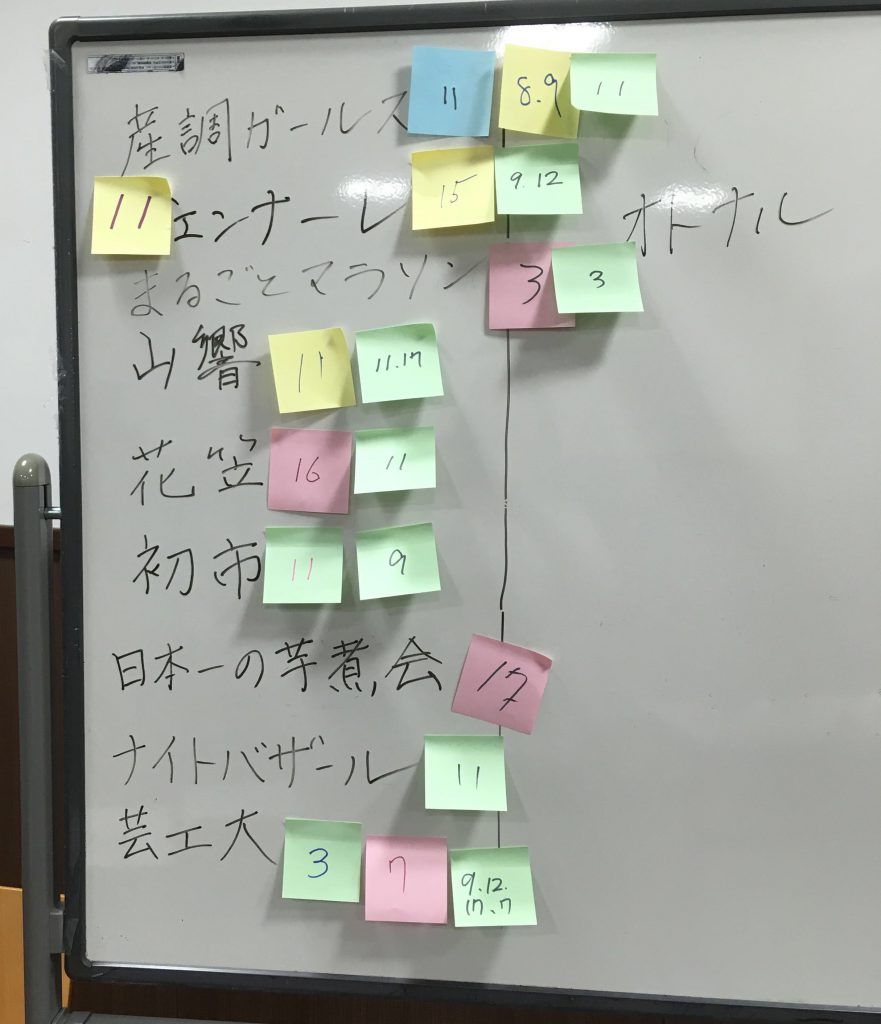 産調ガールズ 11 8.9 11
11 ェンナーレ 15 9.12 オトナル
まるごとマラソン 3 3
山響 11 11.17
花笠 16 11
初市 11 9
日本一の芋煮会 17
ナイトバザール 11
芸工大 3 7 9.12.
17.7